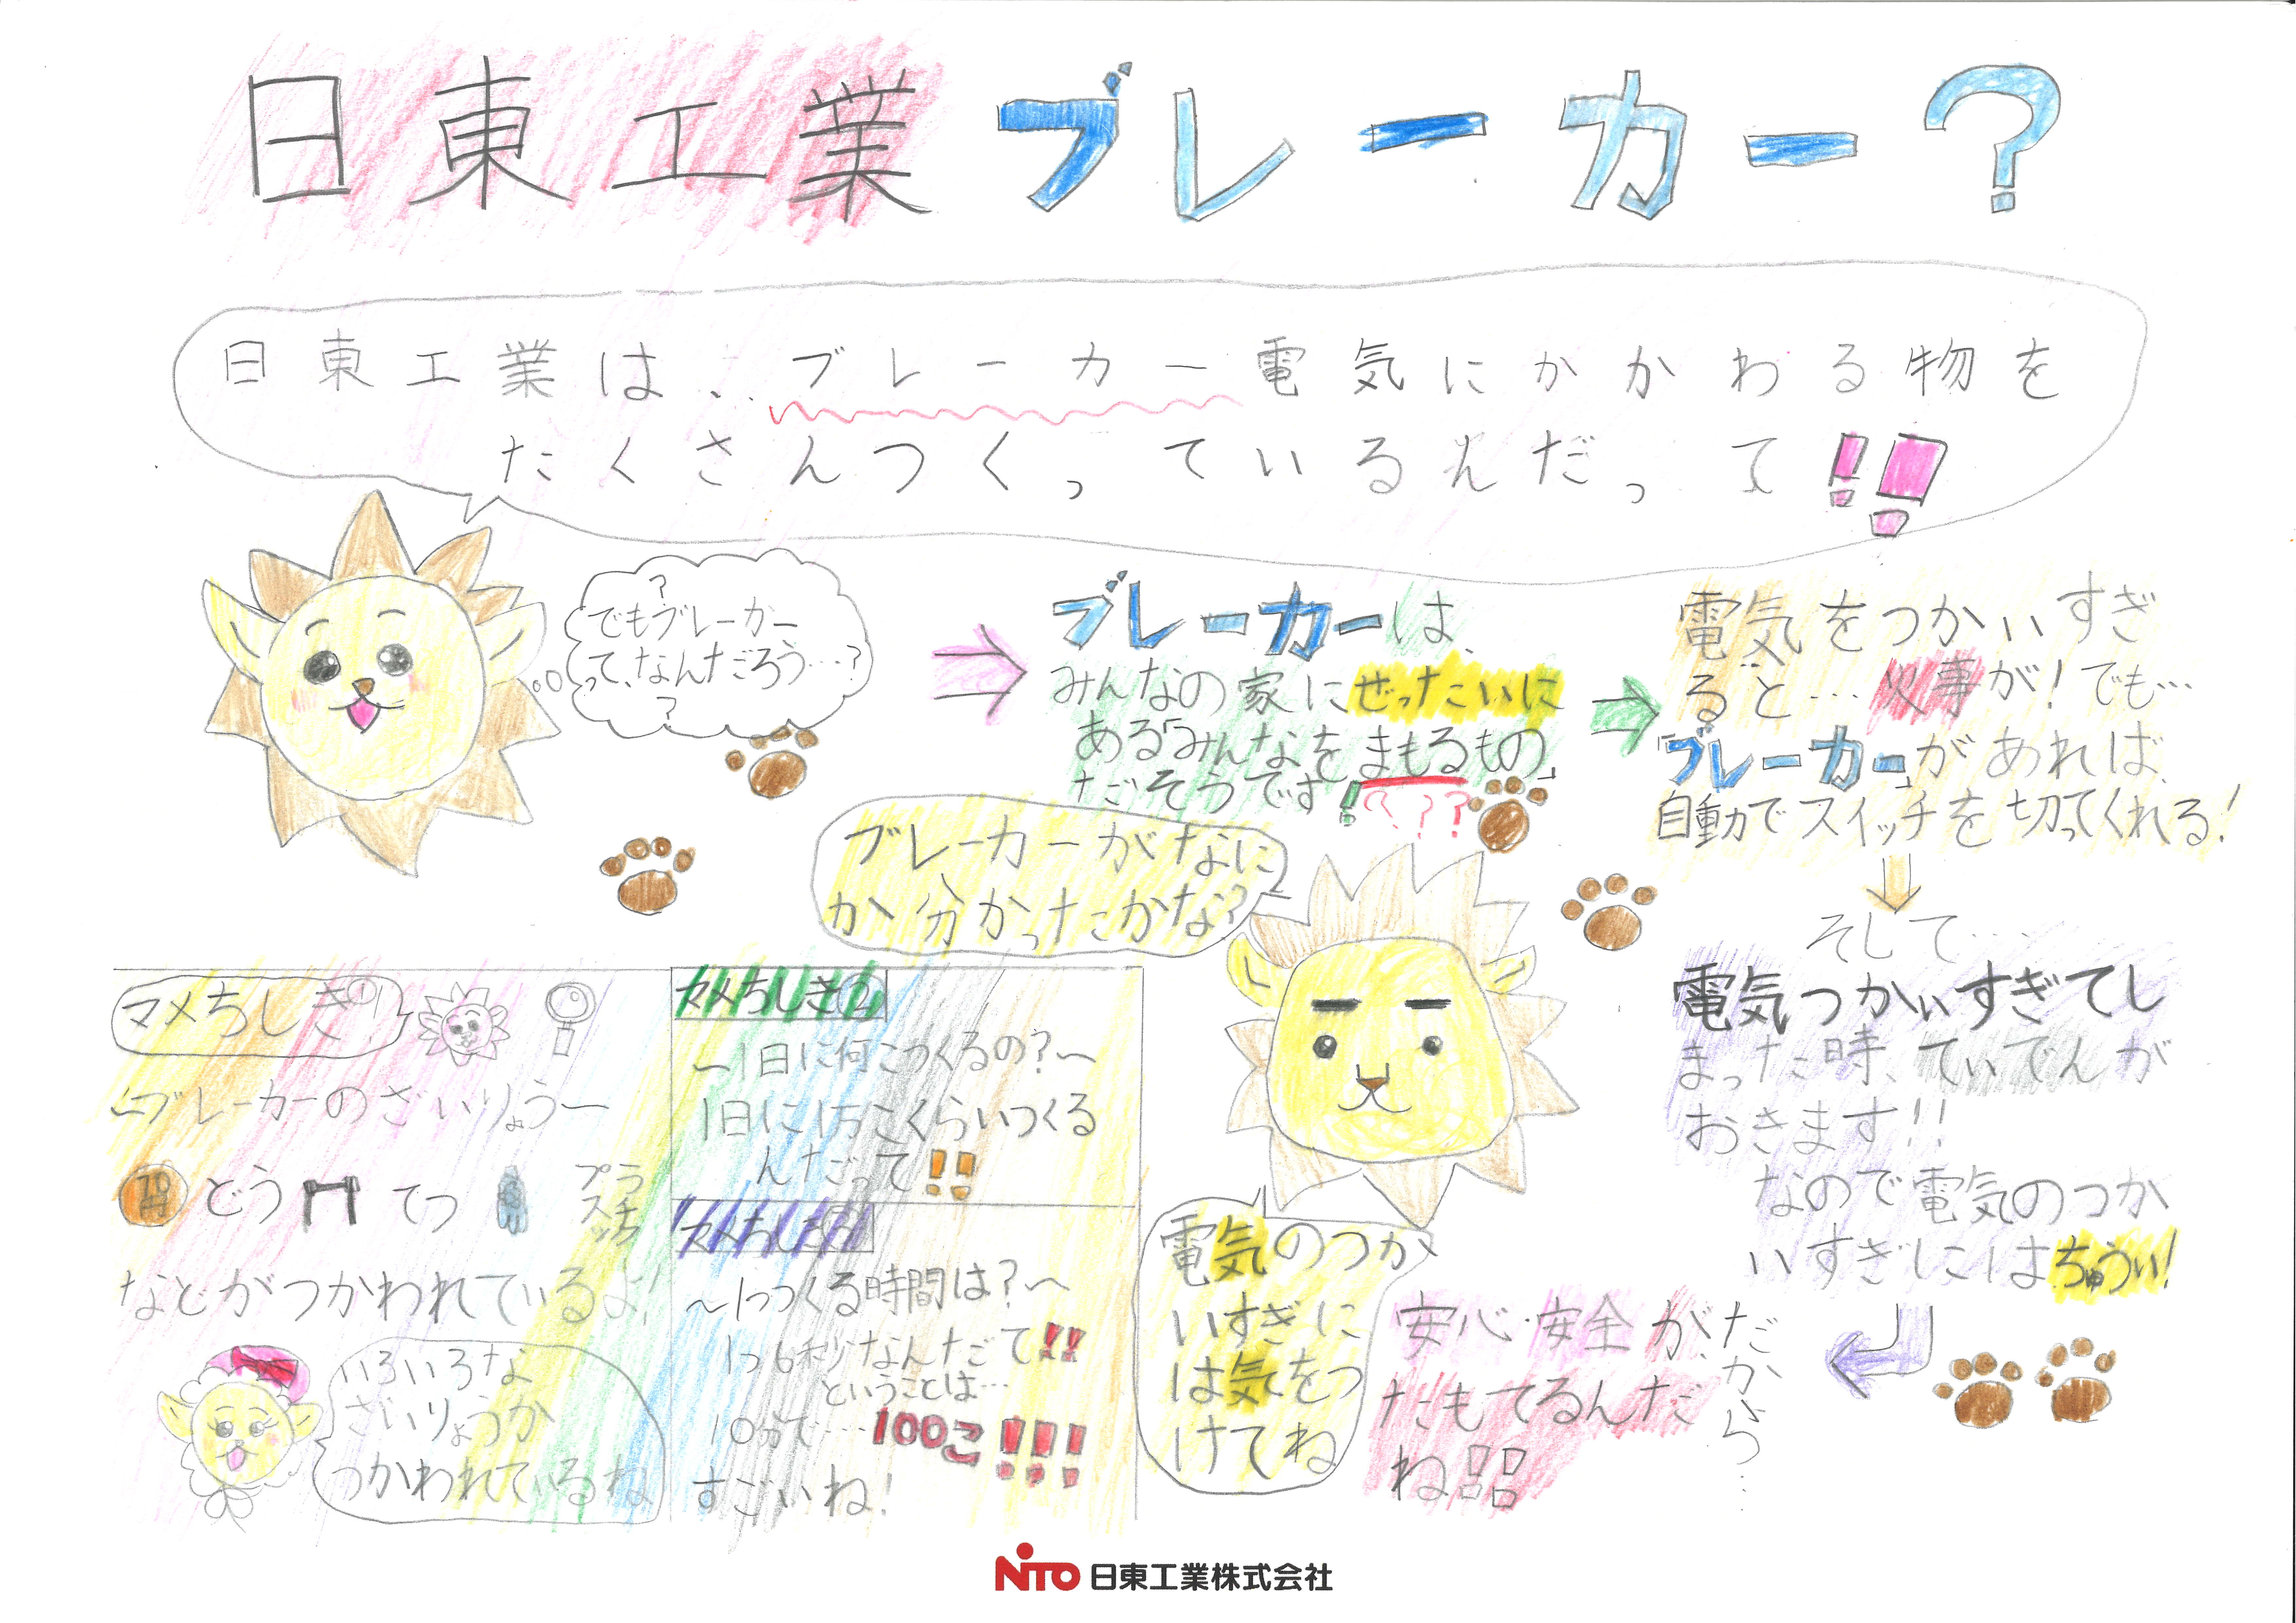 日東工業ブレーカー?
日東工業は、ブレーカー電気にかかわる物を
たくさんつくっているんだって!!
?
でもブレーカー
って、なんだろう…?
?
ブレーカーは、
みんなの家にぜったいに
ある「みんなをまもるもの」
だそうです!???
電気をつかいすぎ
ると…火事が!でも…
「ブレーカー」があれば、
自動でスイッチを切ってくれる!
ブレーカーがなに
か分かったかな?
そして…
電気つかいすぎてし
まった時、ていでんが
おきます!!
なので電気のつか
いすぎにはちゅうい!
だから…
安心・安全が、
たもてるんだ
ね!!
電気のつか
いすぎに
は気をつ
けてね
マメちしき①
〜ブレーカーのざいりょう〜
10円
どう てつ プラスチック
などがつかわれているよ!
いろいろな
ざいりょうが
つかわれているね
マメちしき②
〜1日に何こつくるの?〜
1日に1万こくらいつくる
んだって!!
マメちしき③
〜1つつくる時間は?〜
1つ6秒なんだって!!
ということは…
10分で…100こ!!!
すごいね!
NITO 日東工業株式会社